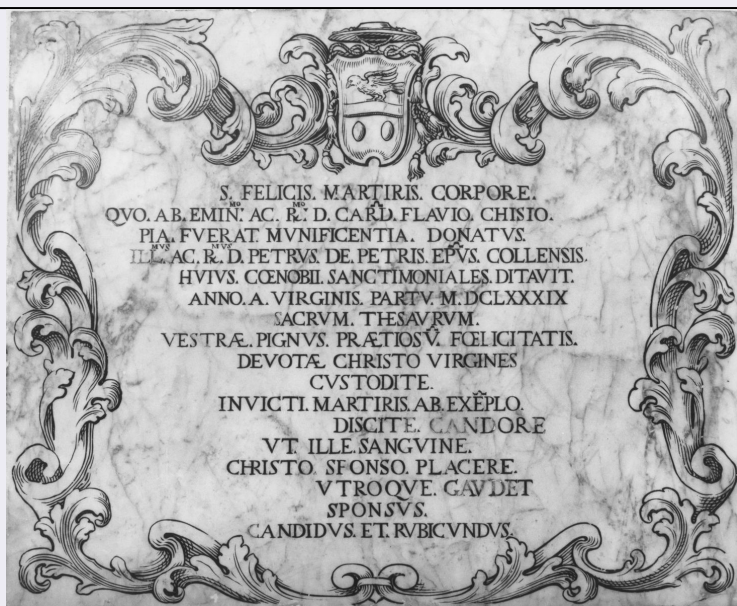 S. FELICIS. MARTIRIS. CORPORE.
QVO. AB. EMIN.MO AC. R.MO D. CARD. FLAVIO. CHISIO.
PIA. FVERAT. MVNIFICENTIA. DONATVS.
ILL.MVS AC. R.MVS D. PETRVS. DE. PETRIS. EP̃VS. COLLENSIS.
HVIVS. CŒNOBII. SANCTIMONIALES. DITAVIT.
ANNO. A. VIRGINIS. PARTV. M.DCLXXXIX
SACRVM. THESAVRVM.
VESTRÆ. PIGNVS. PRÆTIOSṼ. FŒLICITATIS.
DEVOTÆ CHRISTO VIRGINES
CVSTODITE.
INVICTI. MARTIRIS. AB. EXẼPLO.
DISCITE. CANDORE
VT. ILLE. SANGVINE.
CHRISTO SPONSO. PLACERE.
VTROQVE. GAVDET
SPONSVS.
CANDIDVS. ET. RVBICVNDVS.